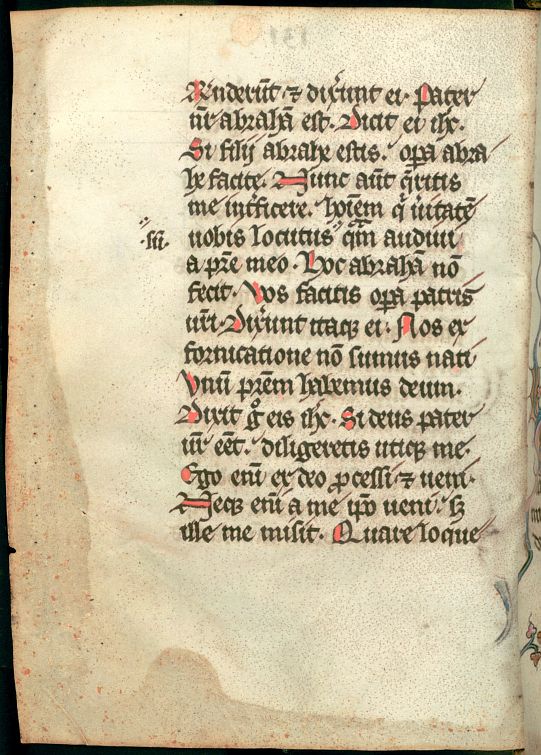 Rnderūt · ⁊ dix̄unt ei · Pater
nr̄ abrahā est · Dicit ei ihc̄ ·
Si filij abrahe estis · oꝑa abra
he facite · Nunc aūt q̄ritis
me int̄ficere · hoīem q̄ ūitatē
·lii· uobis locutus · q̄m audiui
a pr̄e meo · Hoc abrahā nō
fecit · Vos facitis oꝑa patris
ur̄i · Dix̄unt itaqꝫ ei · Nos ex
fornicatione nō sumus nati
Vnū pr̄em habemus deum ·
Dixit gͦ eis ihc̄ · Si deus pater
ur̄ eēt · diligeretis utiqꝫ me ·
Ego eni̅ ex deo ꝓcessi · ⁊ ueni ·
Neqꝫ eni̅ a me ip̄o ueni · sꝫ
ille me misit · Quare loque